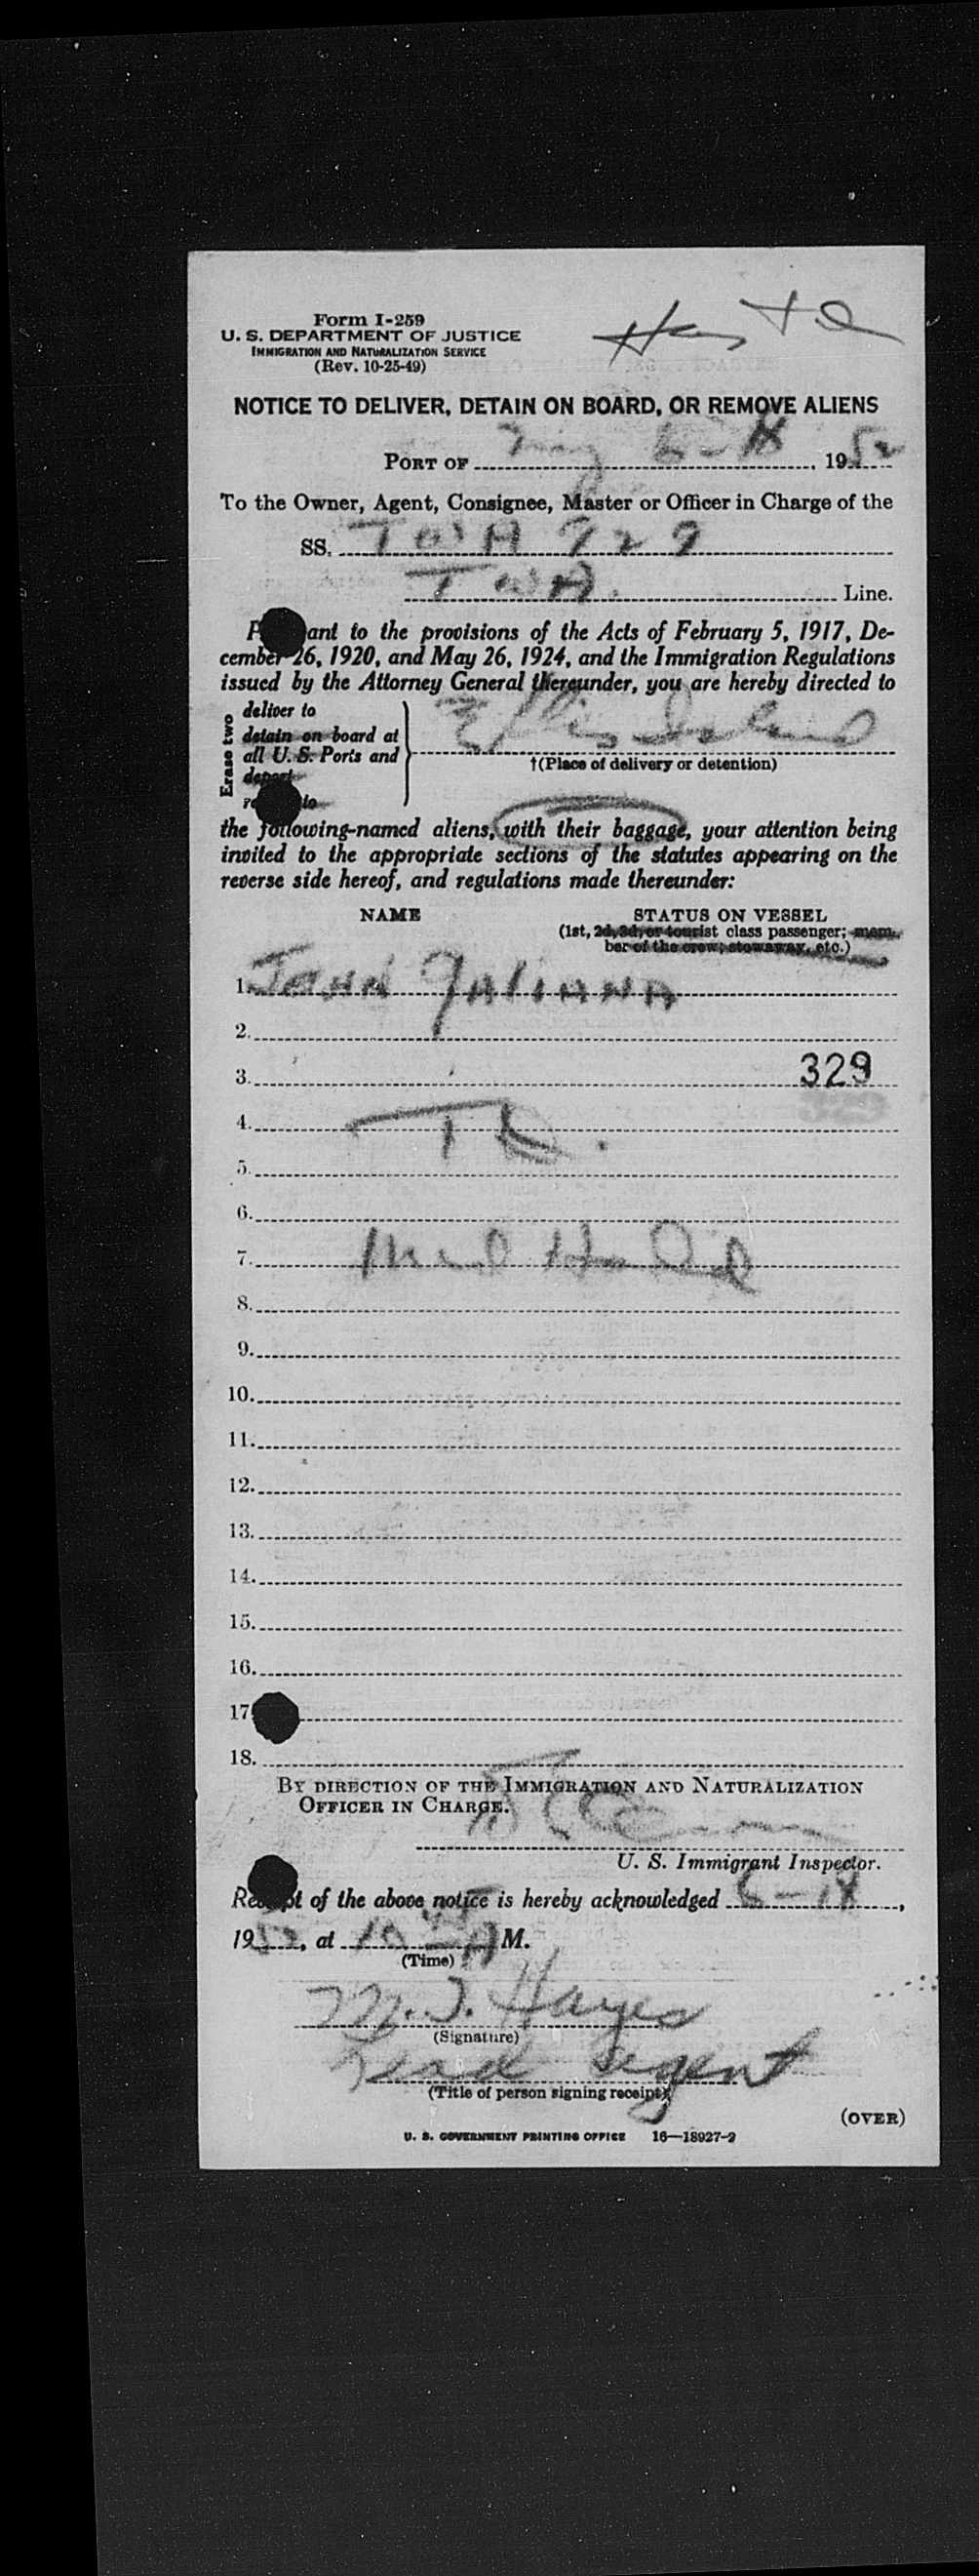 Form I-259
U. S. DEPARTMENT OF JUSTICE
IMMIGRATION AND NATURALIZATION SERVICE
(Rev. 10-25-49)
NOTICE TO DELIVER, DETAIN ON BOARD, OR REMOVE ALIENS
PORT OF 6-18, 1952
To the Owner, Agent, Consignee, Master or Officer in Charge of the
SS. TWA 929
TWA. Line.
ant to the provisions of the Acts of February 5, 1917, De-
cember 26, 1920, and May 26, 1924, and the Immigration Regulations
issued by the Attorney General thereunder, you are hereby directed to
Erase two
deliver to
detain on board at
all U. S. Ports and
deport
to
Ellis Island
†(Place of delivery or detention)
the following-named aliens, with their baggage, your attention being
invited to the appropriate sections of the statutes appearing on the
reverse side hereof, and regulations made thereunder:
NAME STATUS ON VESSEL
(1st, 2d, 3d, or tourist class passenger; mem-
ber of the crew; stowaway, etc.)
1. JOHN GALIANA
2.
3. 329
4.
5.
6.
7.
8.
9.
10.
11.
12.
13.
14.
15.
16.
17
18.
BY DIRECTION OF THE IMMIGRATION AND NATURALIZATION
OFFICER IN CHARGE.
U. S. Immigrant Inspector.
Receipt of the above notice is hereby acknowledged 6-18,
1952, at 10 A M.
(Time)
M. J. Hayes
(Signature)
Lead Agent
(Title of person signing receipt)
(OVER)
U. S. GOVERNMENT PRINTING OFFICE 16—18927-2